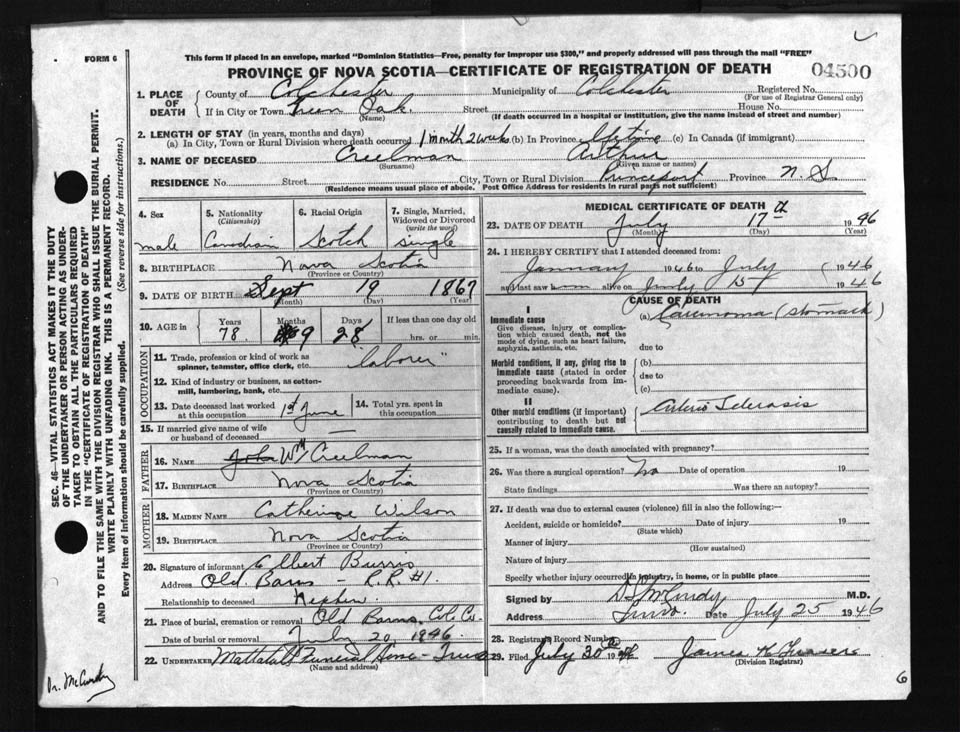 FORM 6
This form if placed in an envelope, marked "Dominion Statistics—Free, penalty for improper use $300," and properly addressed will pass through the mail "FREE"
PROVINCE OF NOVA SCOTIA—CERTIFICATE OF REGISTRATION OF DEATH
04500
1. PLACE OF DEATH
County of Colchester Municipality of Colchester Registered No.
(For use of Registrar General only)
If in City or Town Green Oak Street House No.
(Name) (If death occurred in a hospital or institution, give the name instead of street and number)
2. LENGTH OF STAY (in years, months and days)
(a) In City, Town or Rural Division where death occurred 1 month 2 weeks (b) In Province life time (c) In Canada (if immigrant)
3. NAME OF DECEASED Creelman Arthur
(Surname) (Given name or names)
RESIDENCE No. Street City, Town or Rural Division Princeport Province N. S
(Residence means usual place of abode. Post Office Address for residents in rural parts not sufficient)
4. Sex
male
5. Nationality
(Citizenship)
Canadian
6. Racial Origin
Scotch
7. Single, Married,
Widowed or Divorced
(write the word)
single
8. BIRTHPLACE Nova Scotia
(Province or Country)
9. DATE OF BIRTH Sept 19 1867
(Month) (Day) (Year)
10. AGE in
Years Months Days If less than one day old
78 9 28 hrs. or min.
OCCUPATION
11. Trade, profession or kind of work as
spinner, teamster, office clerk, etc. "laborer"
12. Kind of industry or business, as cotton-
mill, lumbering, bank, etc.
13. Date deceased last worked
at this occupation 1st June
14. Total yrs. spent in
this occupation
15. If married give name of wife
or husband of deceased —
FATHER
16. NAME John Wm Creelman
17. BIRTHPLACE Nova Scotia
(Province or Country)
MOTHER
18. MAIDEN NAME Catherine Wilson
19. BIRTHPLACE Nova Scotia
(Province or Country)
20. Signature of informant Elbert Burris
Address Old Barns — R.R. #1.
Relationship to deceased Nephew.
21. Place of burial, cremation or removal Old Barns, Col. Co.
Date of burial or removal July 20, 1946.
22. UNDERTAKER Mattatall Funeral Home - Truro
(Name and address)
MEDICAL CERTIFICATE OF DEATH
23. DATE OF DEATH July 17th 1946
(Month) (Day) (Year)
24. I HEREBY CERTIFY that I attended deceased from:
January 1946 to July 1946
and last saw him alive on July 15 1946
CAUSE OF DEATH
I
Immediate cause
Give disease, injury or complica-
tion which caused death, not the
mode of dying, such as heart failure,
asphyxia, asthenia, etc.
(a) Carcinoma (stomach)
due to
Morbid conditions, if any, giving rise to
immediate cause (stated in order
proceeding backwards from im-
mediate cause).
(b)
due to
(c)
II
Other morbid conditions (if important)
contributing to death but not
causally related to immediate cause.
Arterio Sclerosis
25. If a woman, was the death associated with pregnancy?
26. Was there a surgical operation? No Date of operation 19
State findings Was there an autopsy?
27. If death was due to external causes (violence) fill in also the following:—
Accident, suicide or homicide? Date of injury 19
(State which)
Manner of injury
(How sustained)
Nature of injury
Specify whether injury occurred in industry, in home, or in public place
Signed by D S McCurdy M.D.
Address Truro Date July 25 1946
28. Registrar's Record Number
29. Filed July 20th 1946 James K Fraser
(Division Registrar)
SEC. 46—VITAL STATISTICS ACT MAKES IT THE DUTY
OF THE UNDERTAKER OR PERSON ACTING AS UNDER-
TAKER TO OBTAIN ALL THE PARTICULARS REQUIRED
IN THE "CERTIFICATE OF REGISTRATION OF DEATH"
AND TO FILE THE SAME WITH THE DIVISION REGISTRAR WHO SHALL ISSUE THE BURIAL PERMIT.
WRITE PLAINLY WITH UNFADING INK. THIS IS A PERMANENT RECORD.
Every item of information should be carefully supplied. (See reverse side for instructions.)
Dr. McCurdy
6